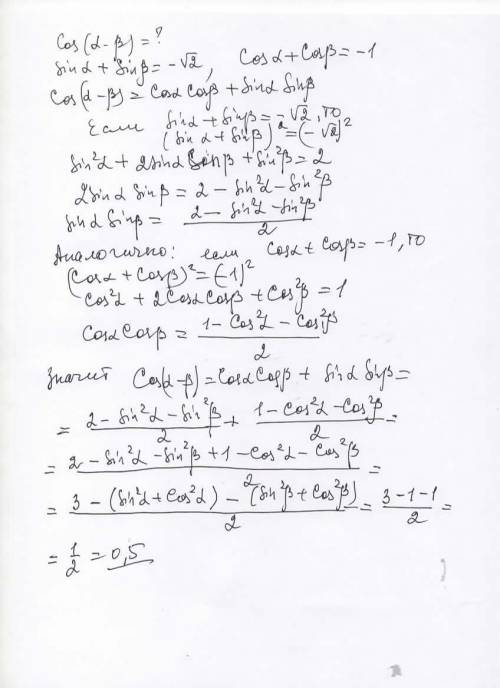 Cos(α-β)=?
sinα + Sinβ = -√2, Cosα + Cosβ = -1
Cos(α-β) = Cosα Cosβ + Sinα Sinβ
Если sinα + Sinβ = -√2, то
(sin α + sinβ)² = (-√2)²
sin²α + 2sinα Sinβ + Sin²β = 2
2Sinα Sinβ = 2 - Sin²α - Sin²β
sinα Sinβ = (2 - Sin²α - Sin²β)/2
Аналогично: если Cosα + Cosβ = -1, то
(Cosα + Cosβ)² = (-1)²
Cos²α + 2Cosα Cosβ + Cos²β = 1
Cosα Cosβ = (1 - Cos²α - Cos²β)/2
Значит Cos(α-β) = Cosα Cosβ + Sinα Sinβ =
= (2 - Sin²α - Sin²β)/2 + (1 - Cos²α - Cos²β)/2 =
= (2 - Sin²α - Sin²β + 1 - Cos²α - Cos²β)/2 =
= (3 - (Sin²α + Cos²α) - (Sin²β + Cos²β))/2 = (3-1-1)/2 =
= 1/2 = 0,5